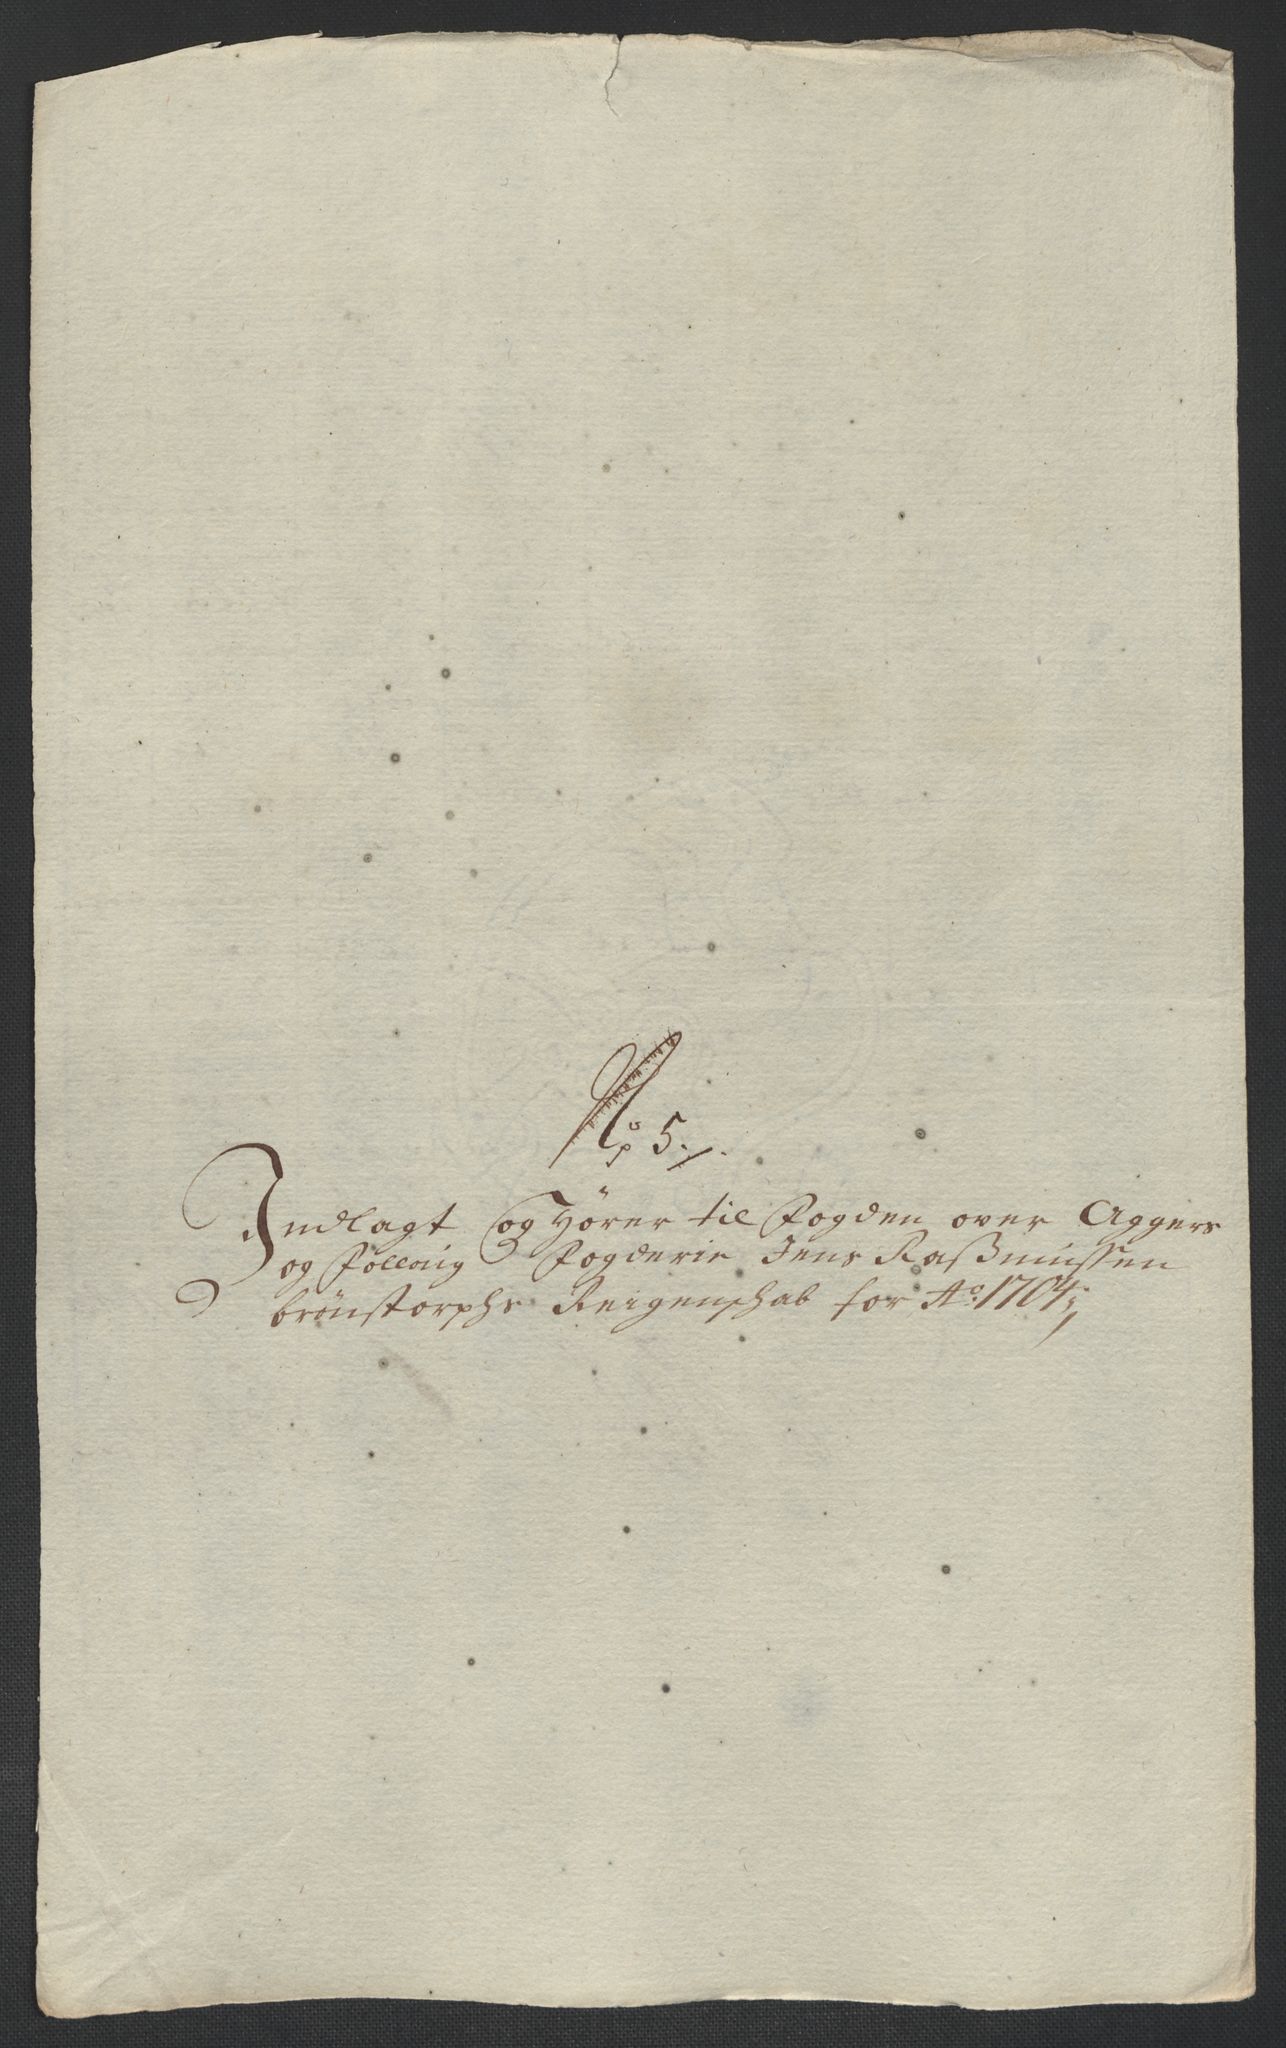 No 5./.
Indlagt og Hörer til Fogden over Aggers
og Folloug Fogderie Jens Raßmussen
brönstorphs Reigenschab for Ao: 1704;